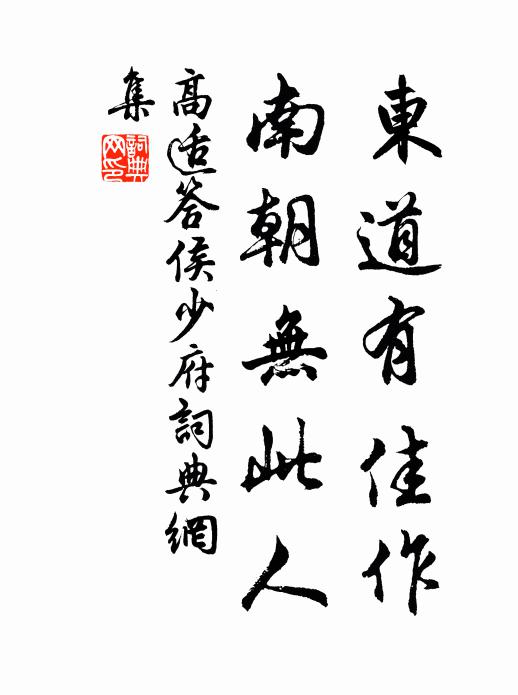 東道有佳作
南朝無此人
高適答侯少府詞典網
集
詞典网印